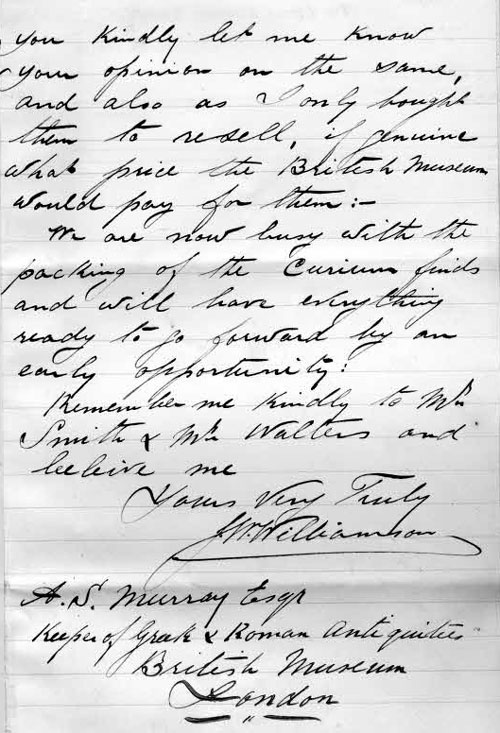 you kindly let me know
your opinion on the same,
and also as I only bought
them to resell, if genuine
what price the British Museum
would pay for them:-
We are now busy with the
packing of the Curium finds
and will have everything
ready to go forward by an
early opportunity:
Remember me kindly to Mr
Smith & Mr Walters and
beleive me
Yours Very Truly
J.W. Williamson
A.S. Murray Esqr
Keeper of Greek & Roman Antiquities
British Museum
London